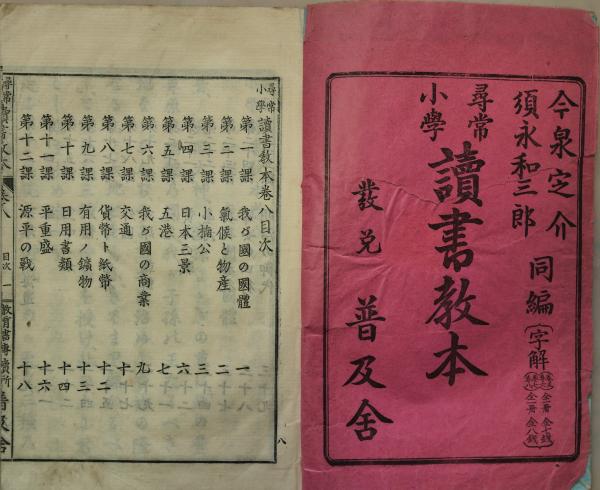 今泉定介
須永和三郎
同編
字解
尋常
小學
讀書教本
發兌
普及舍
尋常
小學
讀書教本卷八目次
第一課 我ガ國の國體 一
第二課 氣候と物産
第三課 小楠公
第四課 日本三景
第五課 五港
第六課 我ガ國の商業
第七課 交通
第八課 貨幣ト紙幣
第九課 有用ノ鑛物
第十課 日用書類
第十一課 平重盛
第十二課 源平の戰
八
尋常讀書教本
卷八
目次
一
普及舍